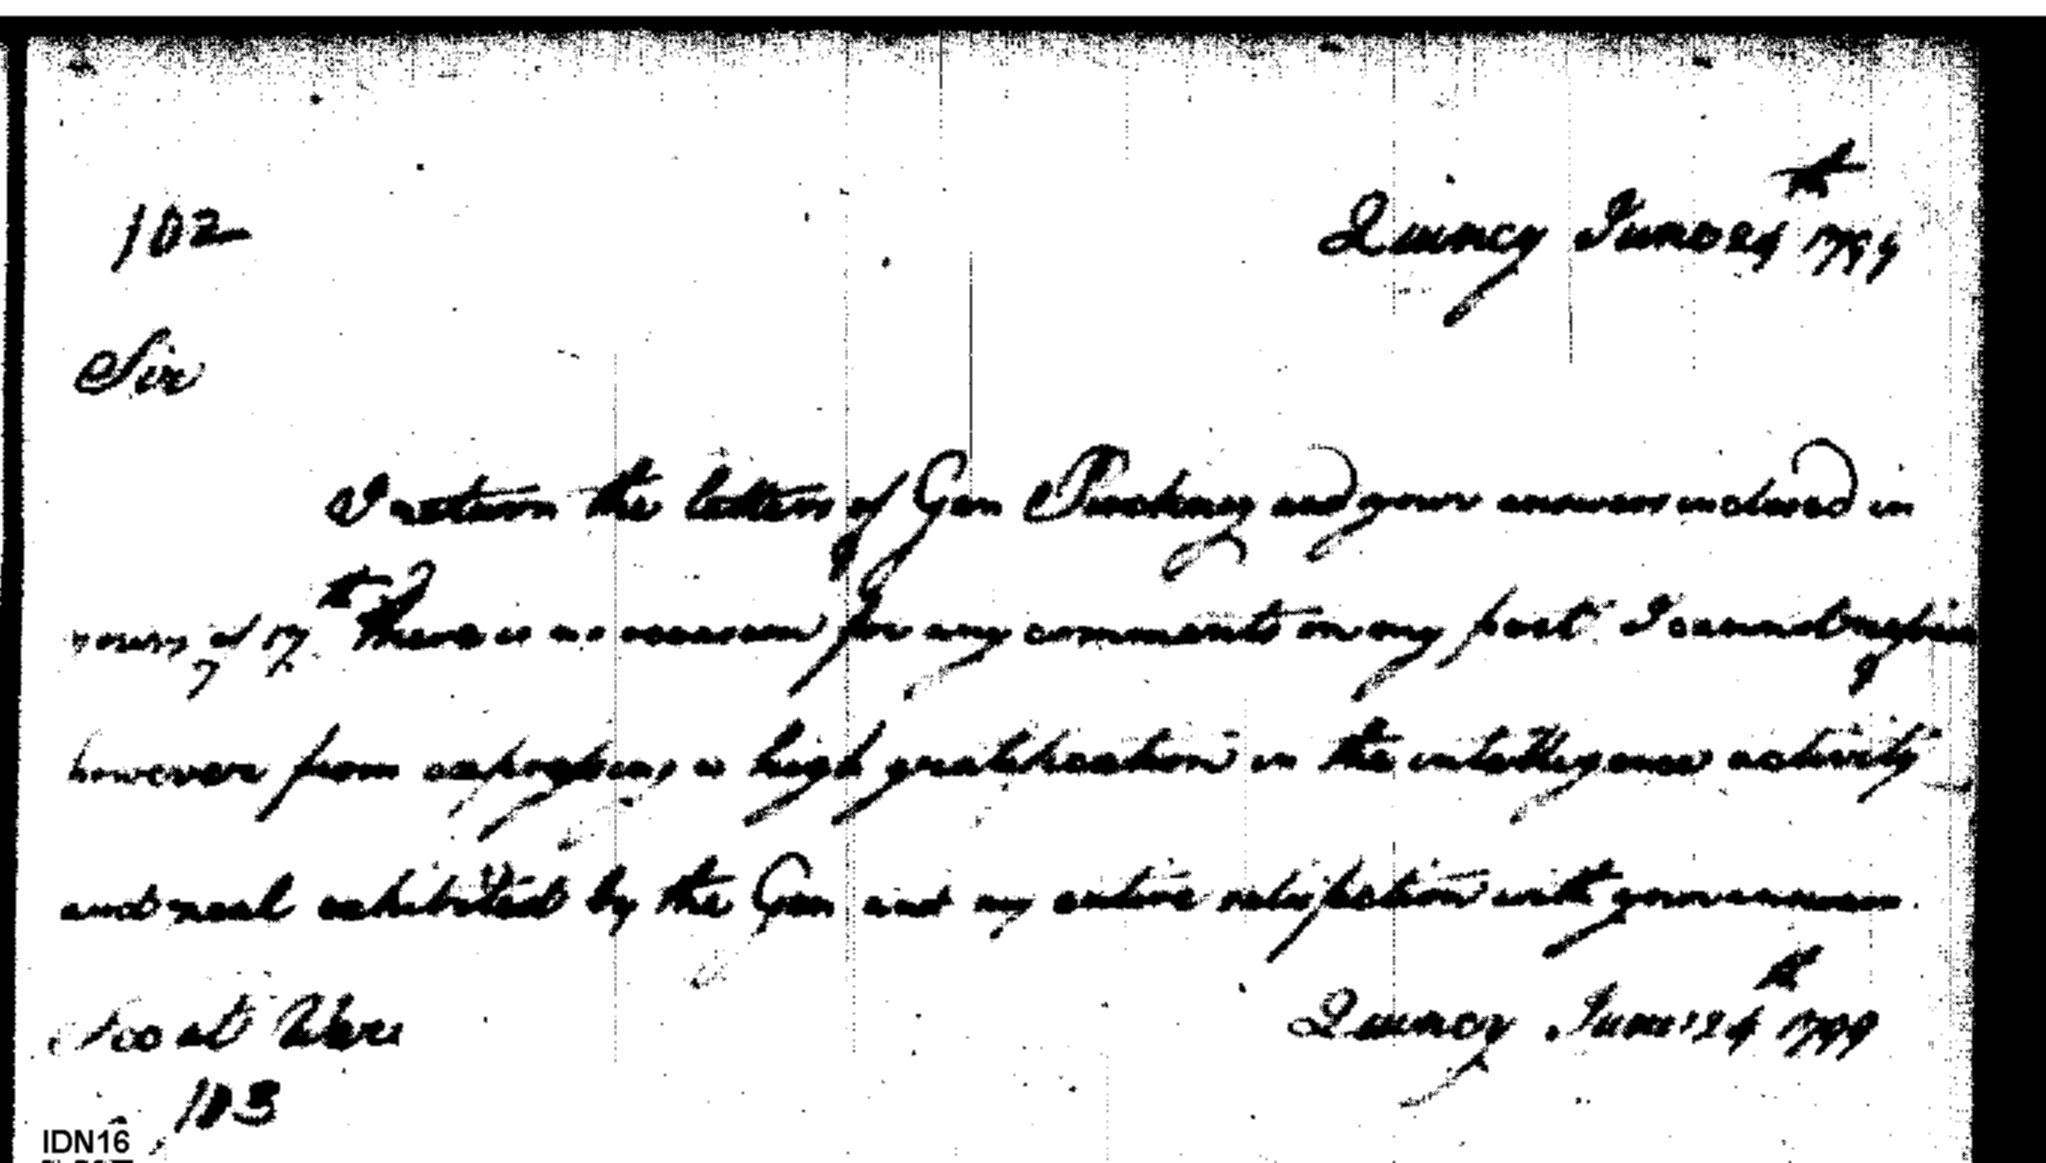 102
Quincy June 24th 1799
Sir
I return the letters of Gen Pinckney and your answers inclosed in
yours of 17th There is no occasion for any comments on my part I cannot refrain
however from expressing a high gratification in the intelligence activity
and zeal exhibited by the Gen and my entire satisfaction with your answers.
Sec at War
Quincy June 24th 1799
103
IDN16